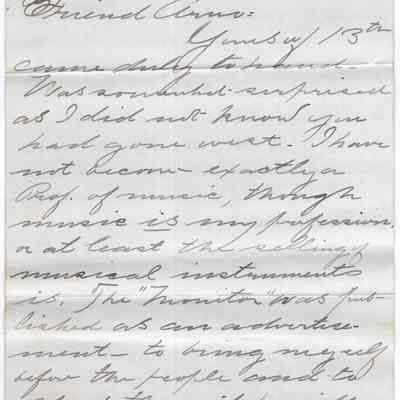 Friend Arno:
Yours of 13th
came duly to hand.
Was somewhat surprised
as I did not know you
had gone west. I have
not becom exactly a
Prof. of music, though
music is my profession,
or at least the selling of
musical instruments
is. The "Monitor" was pub-
lished as an advertise-
ment - to bring myself
before the people and to